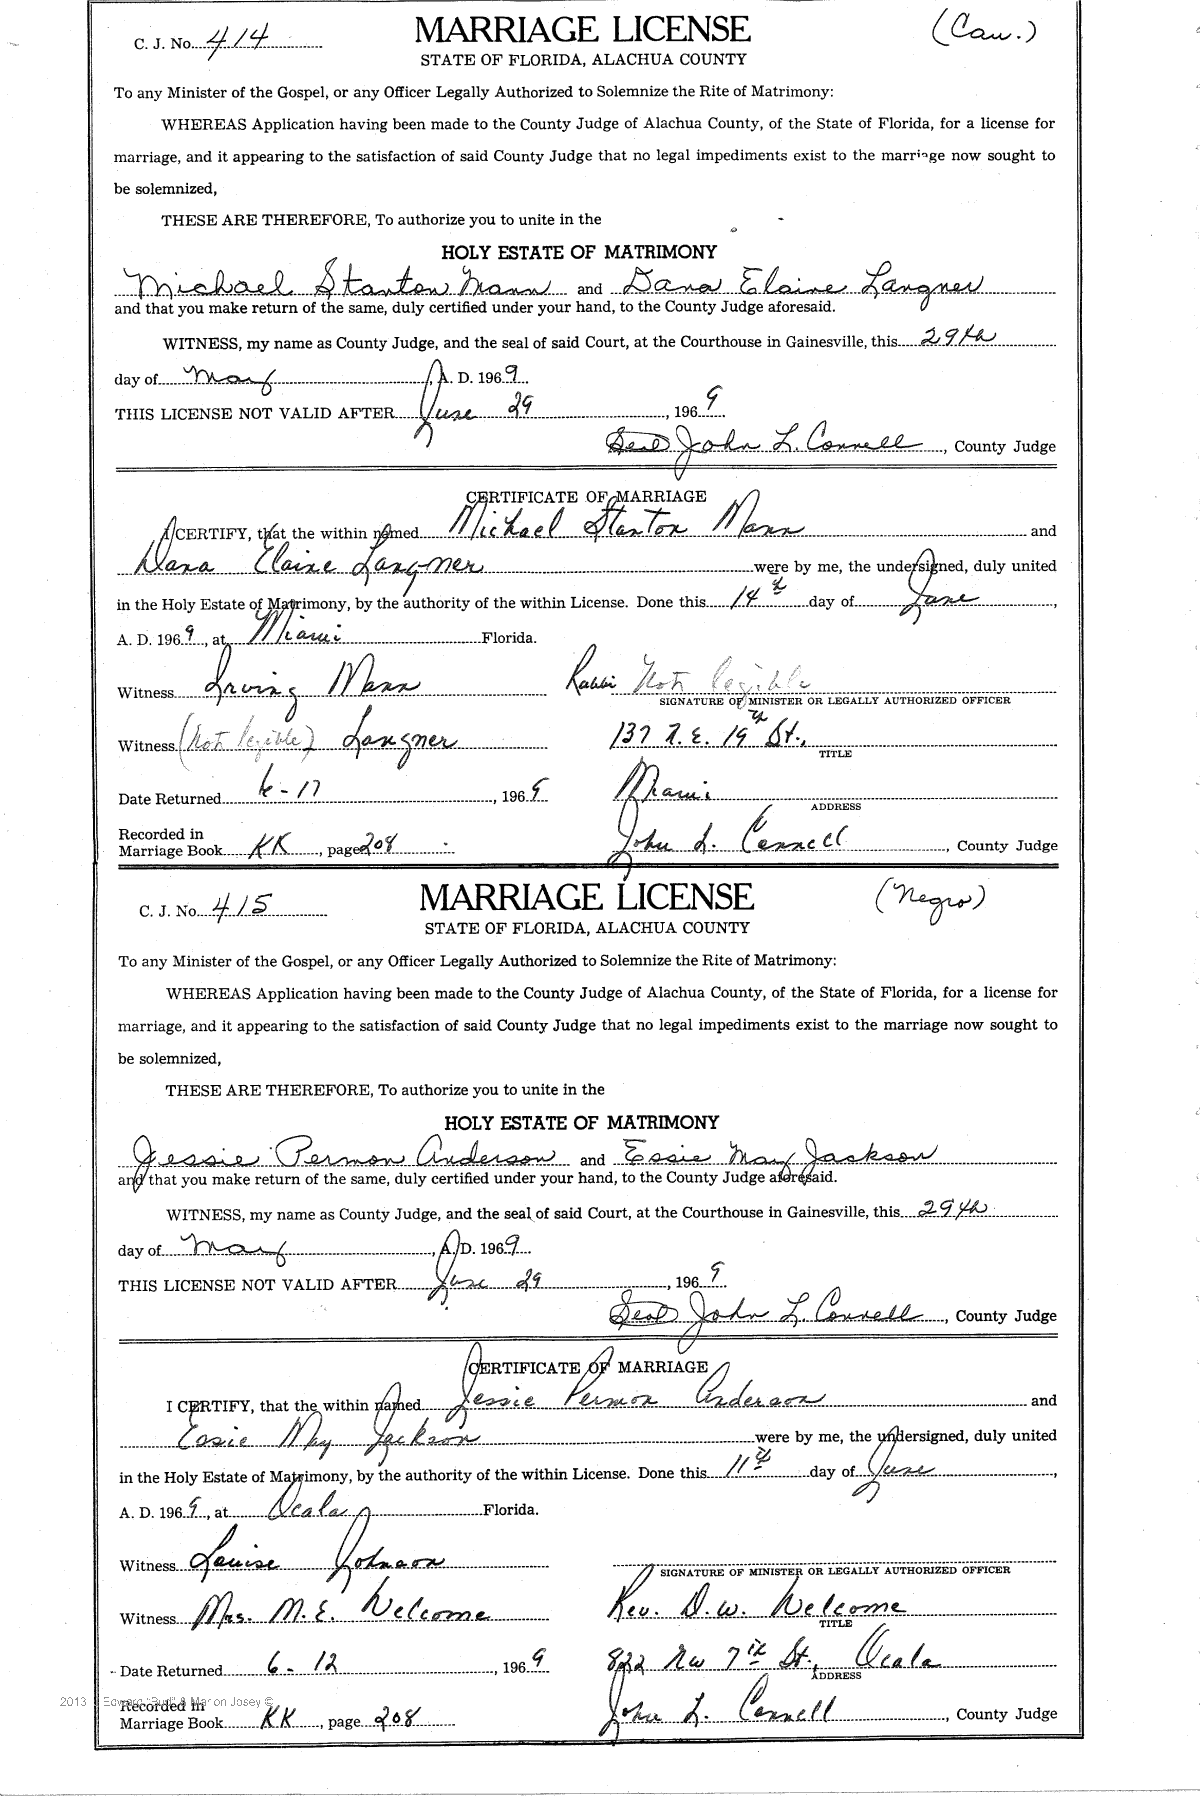 C. J. No. 414 MARRIAGE LICENSE (Cau.)
STATE OF FLORIDA, ALACHUA COUNTY
To any Minister of the Gospel, or any Officer Legally Authorized to Solemnize the Rite of Matrimony:
WHEREAS Application having been made to the County Judge of Alachua County, of the State of Florida, for a license for
marriage, and it appearing to the satisfaction of said County Judge that no legal impediments exist to the marriage now sought to
be solemnized,
THESE ARE THEREFORE, To authorize you to unite in the
HOLY ESTATE OF MATRIMONY
Michael Stanton Mann and Dana Elaine Langner
and that you make return of the same, duly certified under your hand, to the County Judge aforesaid.
WITNESS, my name as County Judge, and the seal of said Court, at the Courthouse in Gainesville, this 29th
day of May, A. D. 1969
THIS LICENSE NOT VALID AFTER June 29, 1969
Seal John L. Connell, County Judge
CERTIFICATE OF MARRIAGE
I CERTIFY, that the within named Michael Stanton Mann and
Dana Elaine Langner were by me, the undersigned, duly united
in the Holy Estate of Matrimony, by the authority of the within License. Done this 14th day of June,
A. D. 1969, at Miami Florida.
Witness Irving Mann Rabbi Not legible
SIGNATURE OF MINISTER OR LEGALLY AUTHORIZED OFFICER
Witness (Not legible) Langner 137 N. E. 19th St.,
TITLE
Date Returned 6-17, 1969 Miami
ADDRESS
Recorded in
Marriage Book KK, page 208 John L. Connell, County Judge
C. J. No. 415 MARRIAGE LICENSE (Negro)
STATE OF FLORIDA, ALACHUA COUNTY
To any Minister of the Gospel, or any Officer Legally Authorized to Solemnize the Rite of Matrimony:
WHEREAS Application having been made to the County Judge of Alachua County, of the State of Florida, for a license for
marriage, and it appearing to the satisfaction of said County Judge that no legal impediments exist to the marriage now sought to
be solemnized,
THESE ARE THEREFORE, To authorize you to unite in the
HOLY ESTATE OF MATRIMONY
Jessie Permon Anderson and Essie May Jackson
and that you make return of the same, duly certified under your hand, to the County Judge aforesaid.
WITNESS, my name as County Judge, and the seal of said Court, at the Courthouse in Gainesville, this 29th
day of May, A. D. 1969
THIS LICENSE NOT VALID AFTER June 29, 1969
Seal John L. Connell, County Judge
CERTIFICATE OF MARRIAGE
I CERTIFY, that the within named Jessie Permon Anderson and
Essie May Jackson were by me, the undersigned, duly united
in the Holy Estate of Matrimony, by the authority of the within License. Done this 11th day of June,
A. D. 1969, at Ocala Florida.
Witness Louise Johnson
SIGNATURE OF MINISTER OR LEGALLY AUTHORIZED OFFICER
Witness Mrs. M. E. Welcome Rev. D. W. Welcome
TITLE
Date Returned 6-12, 1969 822 NW 7th St., Ocala
ADDRESS
2013 Edward "Bud" & Marion Josey ©
Recorded in
Marriage Book KK, page 208 John L. Connell, County Judge